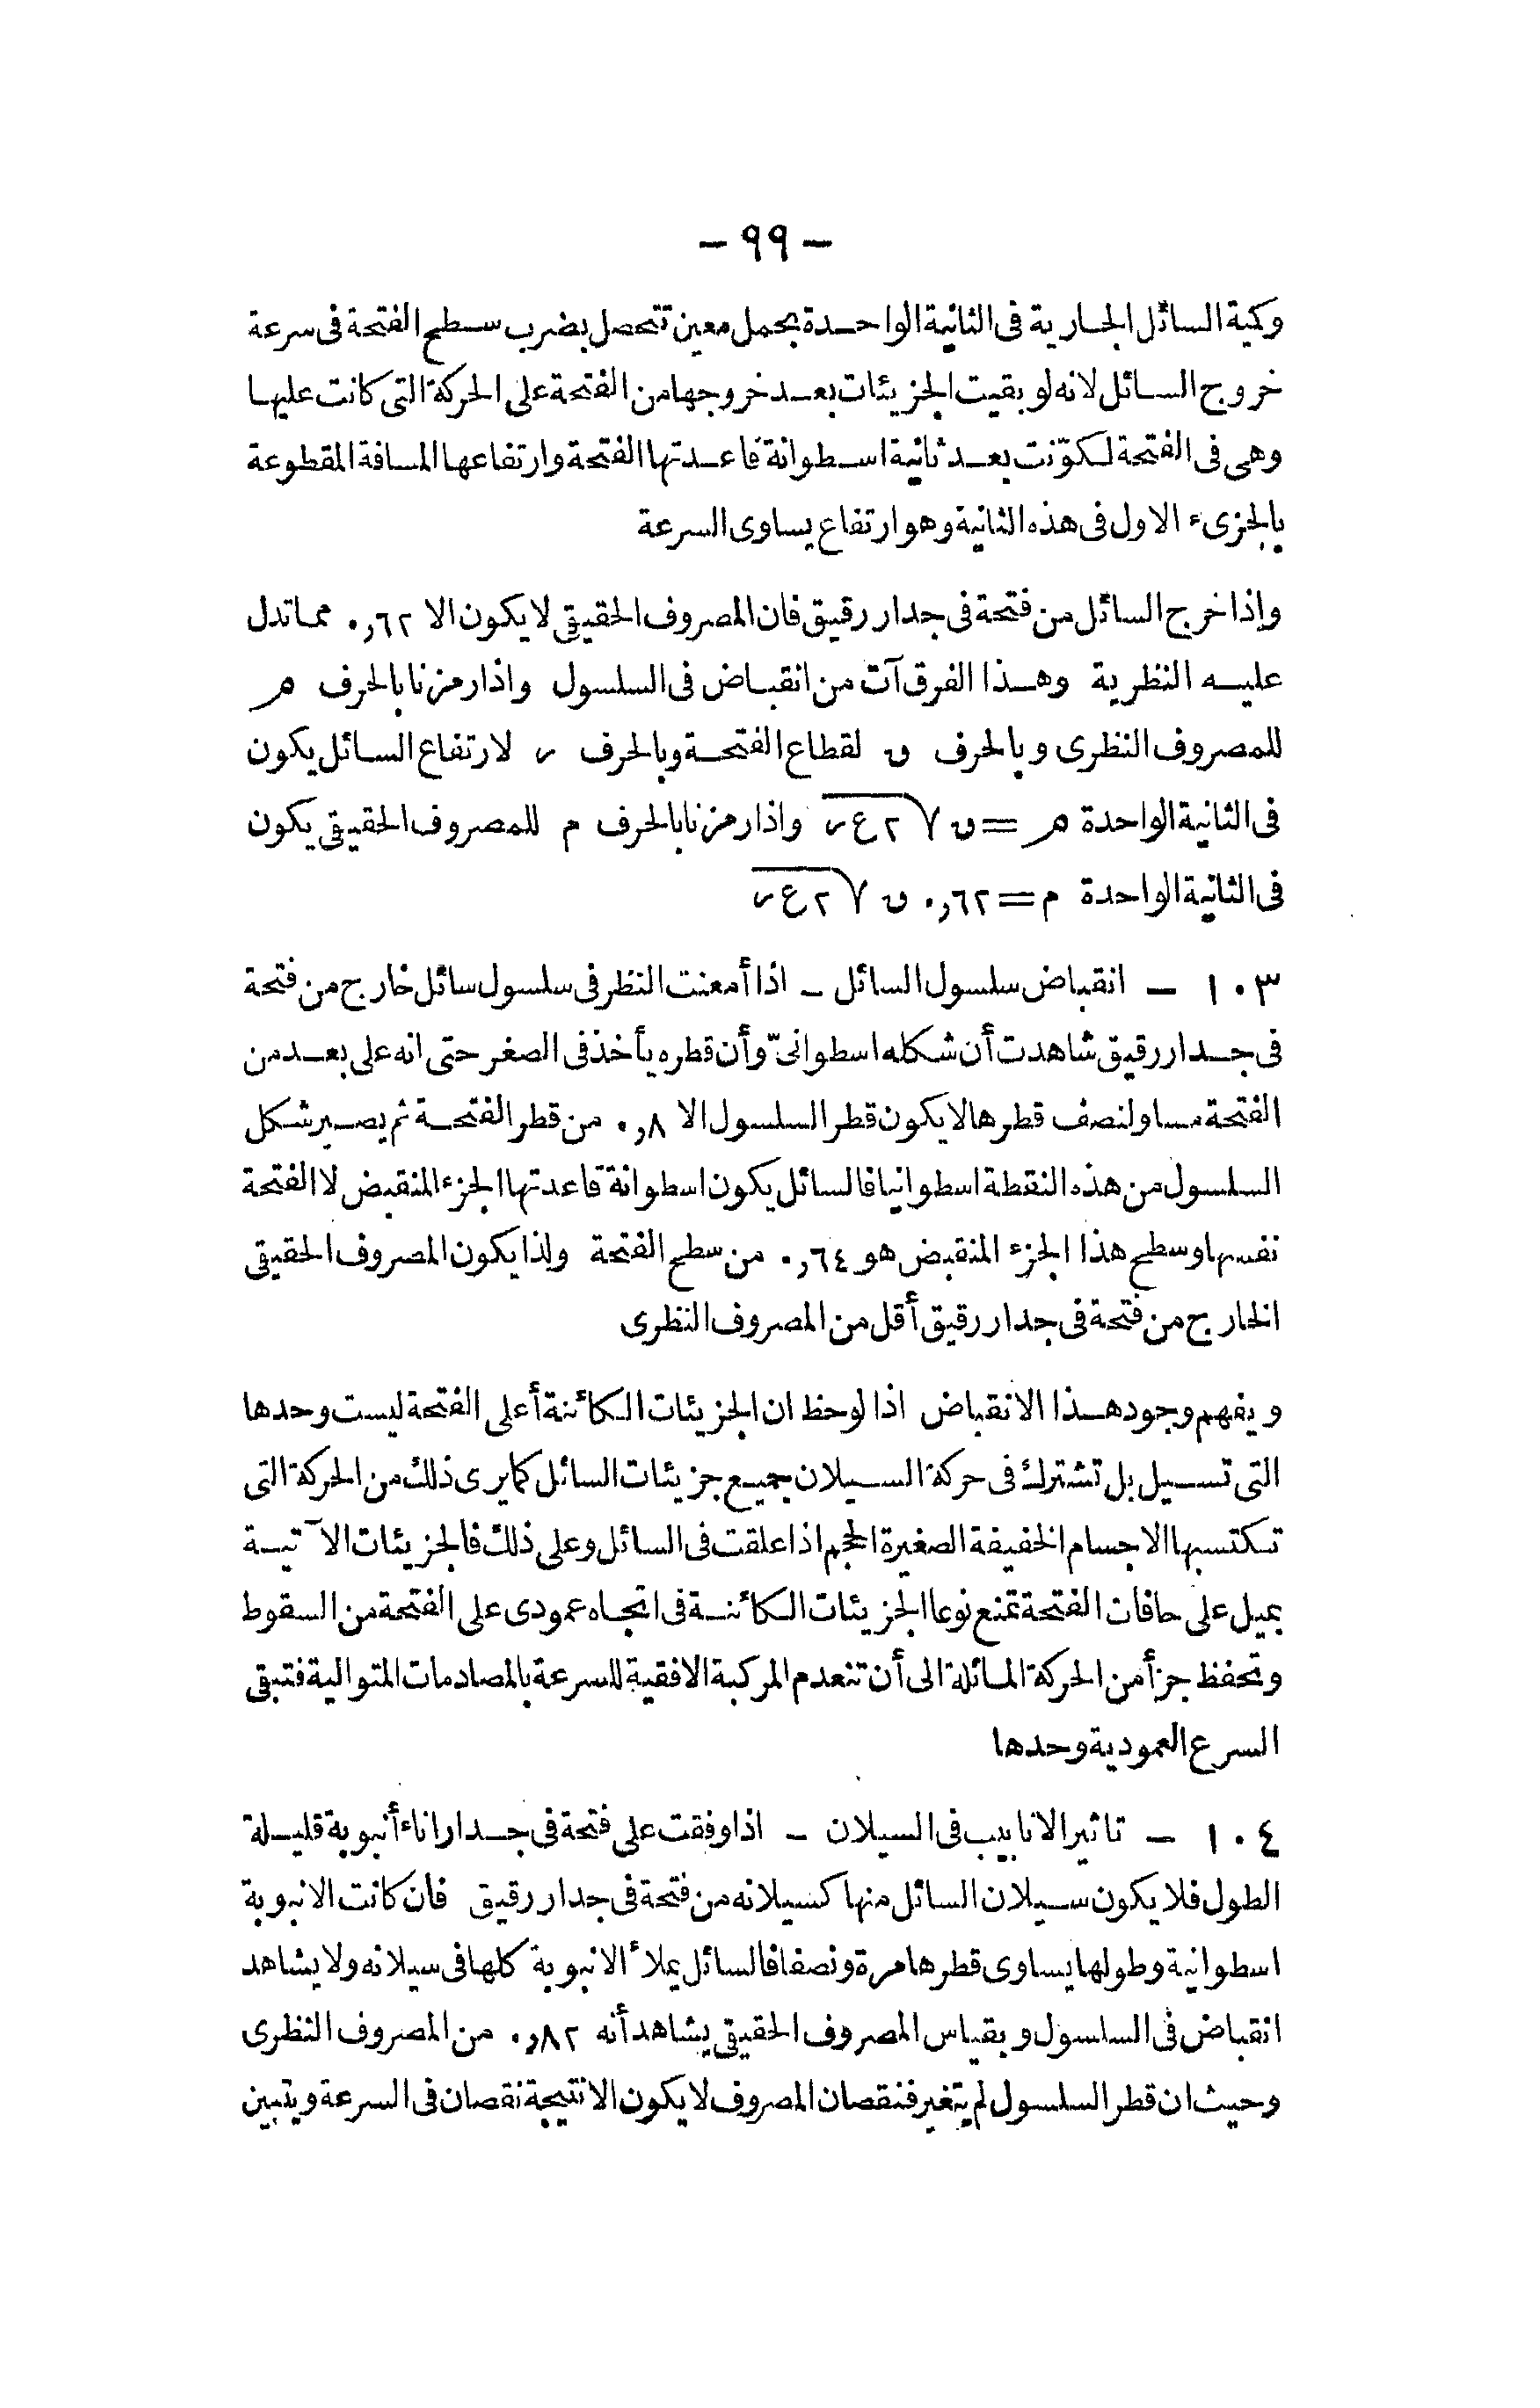 - ٩٩ -
وكمية السائل الجارية فى الثانية الواحدة بمحل معين تتحصل بضرب سطح الفتحة فى سرعة
خروج السائل لانه لو بقيت الجزيئات بعد خروجها من الفتحة على الحركة التى كانت عليها
وهى فى الفتحة لكوّنت بعد ثانية اسطوانة قاعدتها الفتحة وارتفاعها المسافة المقطوعة
بالجزىء الاول فى هذه الثانية وهو ارتفاع يساوى السرعة
واذا خرج السائل من فتحة فى جدار رقيق فان المصروف الحقيقى لا يكون الا ٠,٦٢ مما تدل
عليه النظرية وهذا الفرق آت من انقباض فى السلسول واذا رمزنا بالحرف م
للمصروف النظرى وبالحرف ق لقطاع الفتحة وبالحرف ر لارتفاع السائل يكون
فى الثانية الواحدة م = ق √٢ع ر واذا رمزنا بالحرف م للمصروف الحقيقى يكون
فى الثانية الواحدة م = ٠,٦٢ ق √٢ع ر
١٠٣ - انقباض سلسول السائل - اذا أمعنت النظر فى سلسول سائل خارج من فتحة
فى جدار رقيق شاهدت أن شكله اسطوانىّ وأن قطره يأخذ فى الصغر حتى انه على بعد من
الفتحة مساو لنصف قطرها لا يكون قطر السلسول الا ٠,٨ من قطر الفتحة ثم يصير شكل
السلسول من هذه النقطة اسطوانيا فالسائل يكون اسطوانة قاعدتها الجزء المنقبض لا الفتحة
نفسها وسطح هذا الجزء المنقبض هو ٠,٦٤ من سطح الفتحة ولذا يكون المصروف الحقيقى
الخارج من فتحة فى جدار رقيق أقل من المصروف النظرى
ويفهم وجود هذا الانقباض اذا لوحظ ان الجزيئات الكائنة أعلى الفتحة ليست وحدها
التى تسيل بل تشترك فى حركة السيلان جميع جزيئات السائل كما يرى ذلك من الحركة التى
تكتسبها الاجسام الخفيفة الصغيرة الحجم اذا علقت فى السائل وعلى ذلك فالجزيئات الآتية
بميل على حافات الفتحة تمنع نوعا الجزيئات الكائنة فى اتجاه عمودى على الفتحة من السقوط
وتحفظ جزأ من الحركة المائلة الى أن تنعدم المركبة الافقية للسرعة بالمصادمات المتوالية فتبقى
السرع العمودية وحدها
١٠٤ - تاثير الانابيب فى السيلان - اذا وفقت على فتحة فى جدار اناء أنبوبة قليلة
الطول فلا يكون سيلان السائل منها كسيلانه من فتحة فى جدار رقيق فان كانت الانبوبة
اسطوانية وطولها يساوى قطرها مرة ونصفا فالسائل يملأ الانبوبة كلها فى سيلانه ولا يشاهد
انقباض فى السلسول وبقياس المصروف الحقيقى يشاهد أنه ٠,٨٢ من المصروف النظرى
وحيث ان قطر السلسول لم يتغير فنقصان المصروف لا يكون الا نتيجة نقصان فى السرعة ويتبين